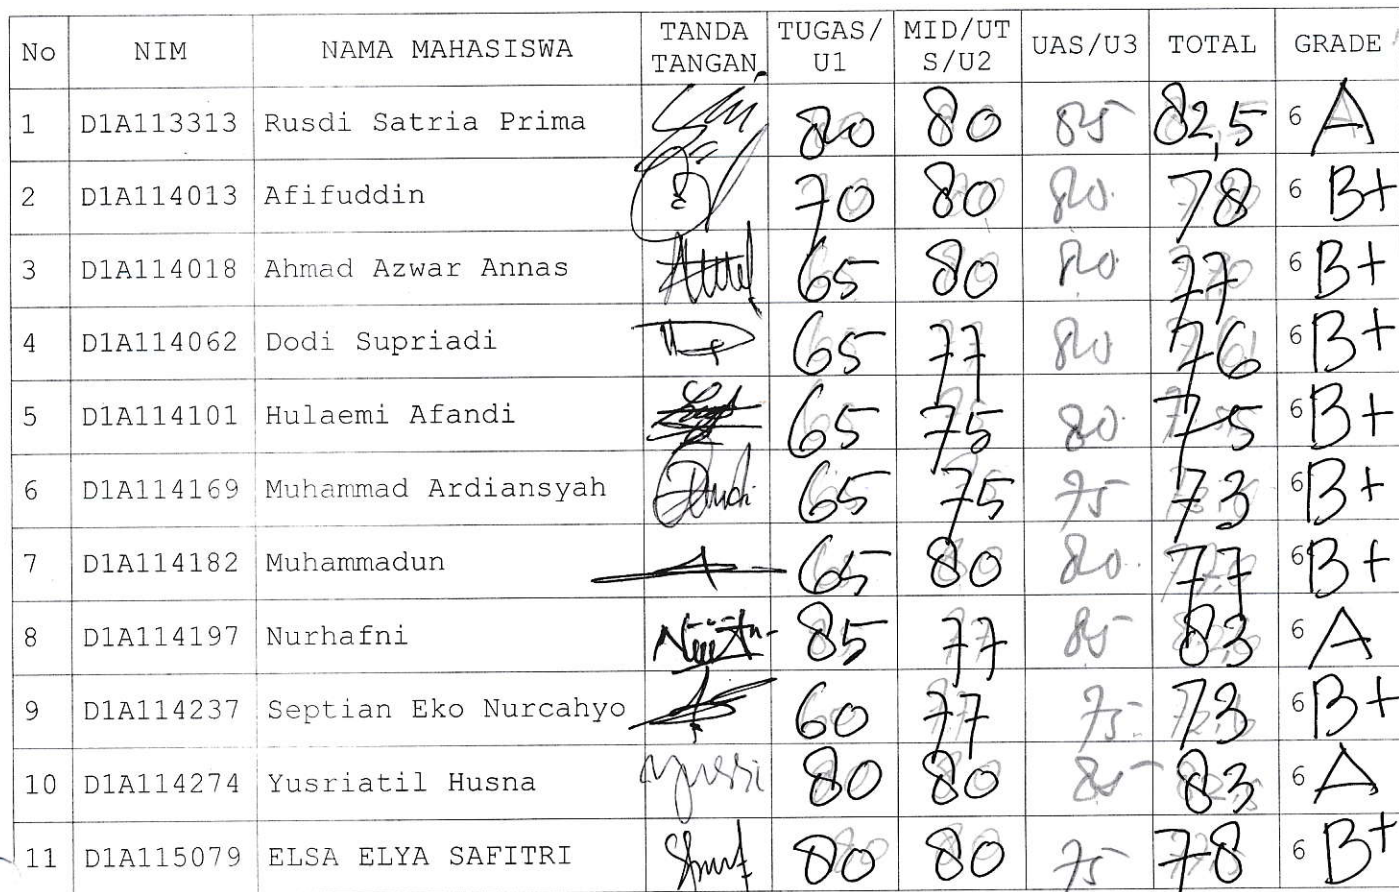 No NIM NAMA MAHASISWA TANDA TANGAN TUGAS/U1 MID/UTS/U2 UAS/U3 TOTAL GRADE
1 D1A113313 Rusdi Satria Prima 80 80 85 82,5 6 A
2 D1A114013 Afifuddin 70 80 80 78 6 B+
3 D1A114018 Ahmad Azwar Annas 65 80 80 77 6 B+
4 D1A114062 Dodi Supriadi 65 77 80 76 6 B+
5 D1A114101 Hulaemi Afandi 65 75 80 75 6 B+
6 D1A114169 Muhammad Ardiansyah 65 75 75 73 6 B+
7 D1A114182 Muhammadun 65 80 80 77 6 B+
8 D1A114197 Nurhafni 85 77 85 83 6 A
9 D1A114237 Septian Eko Nurcahyo 60 77 75 73 6 B+
10 D1A114274 Yusriatil Husna 80 80 85 83 6 A
11 D1A115079 ELSA ELYA SAFITRI 80 80 75 78 6 B+